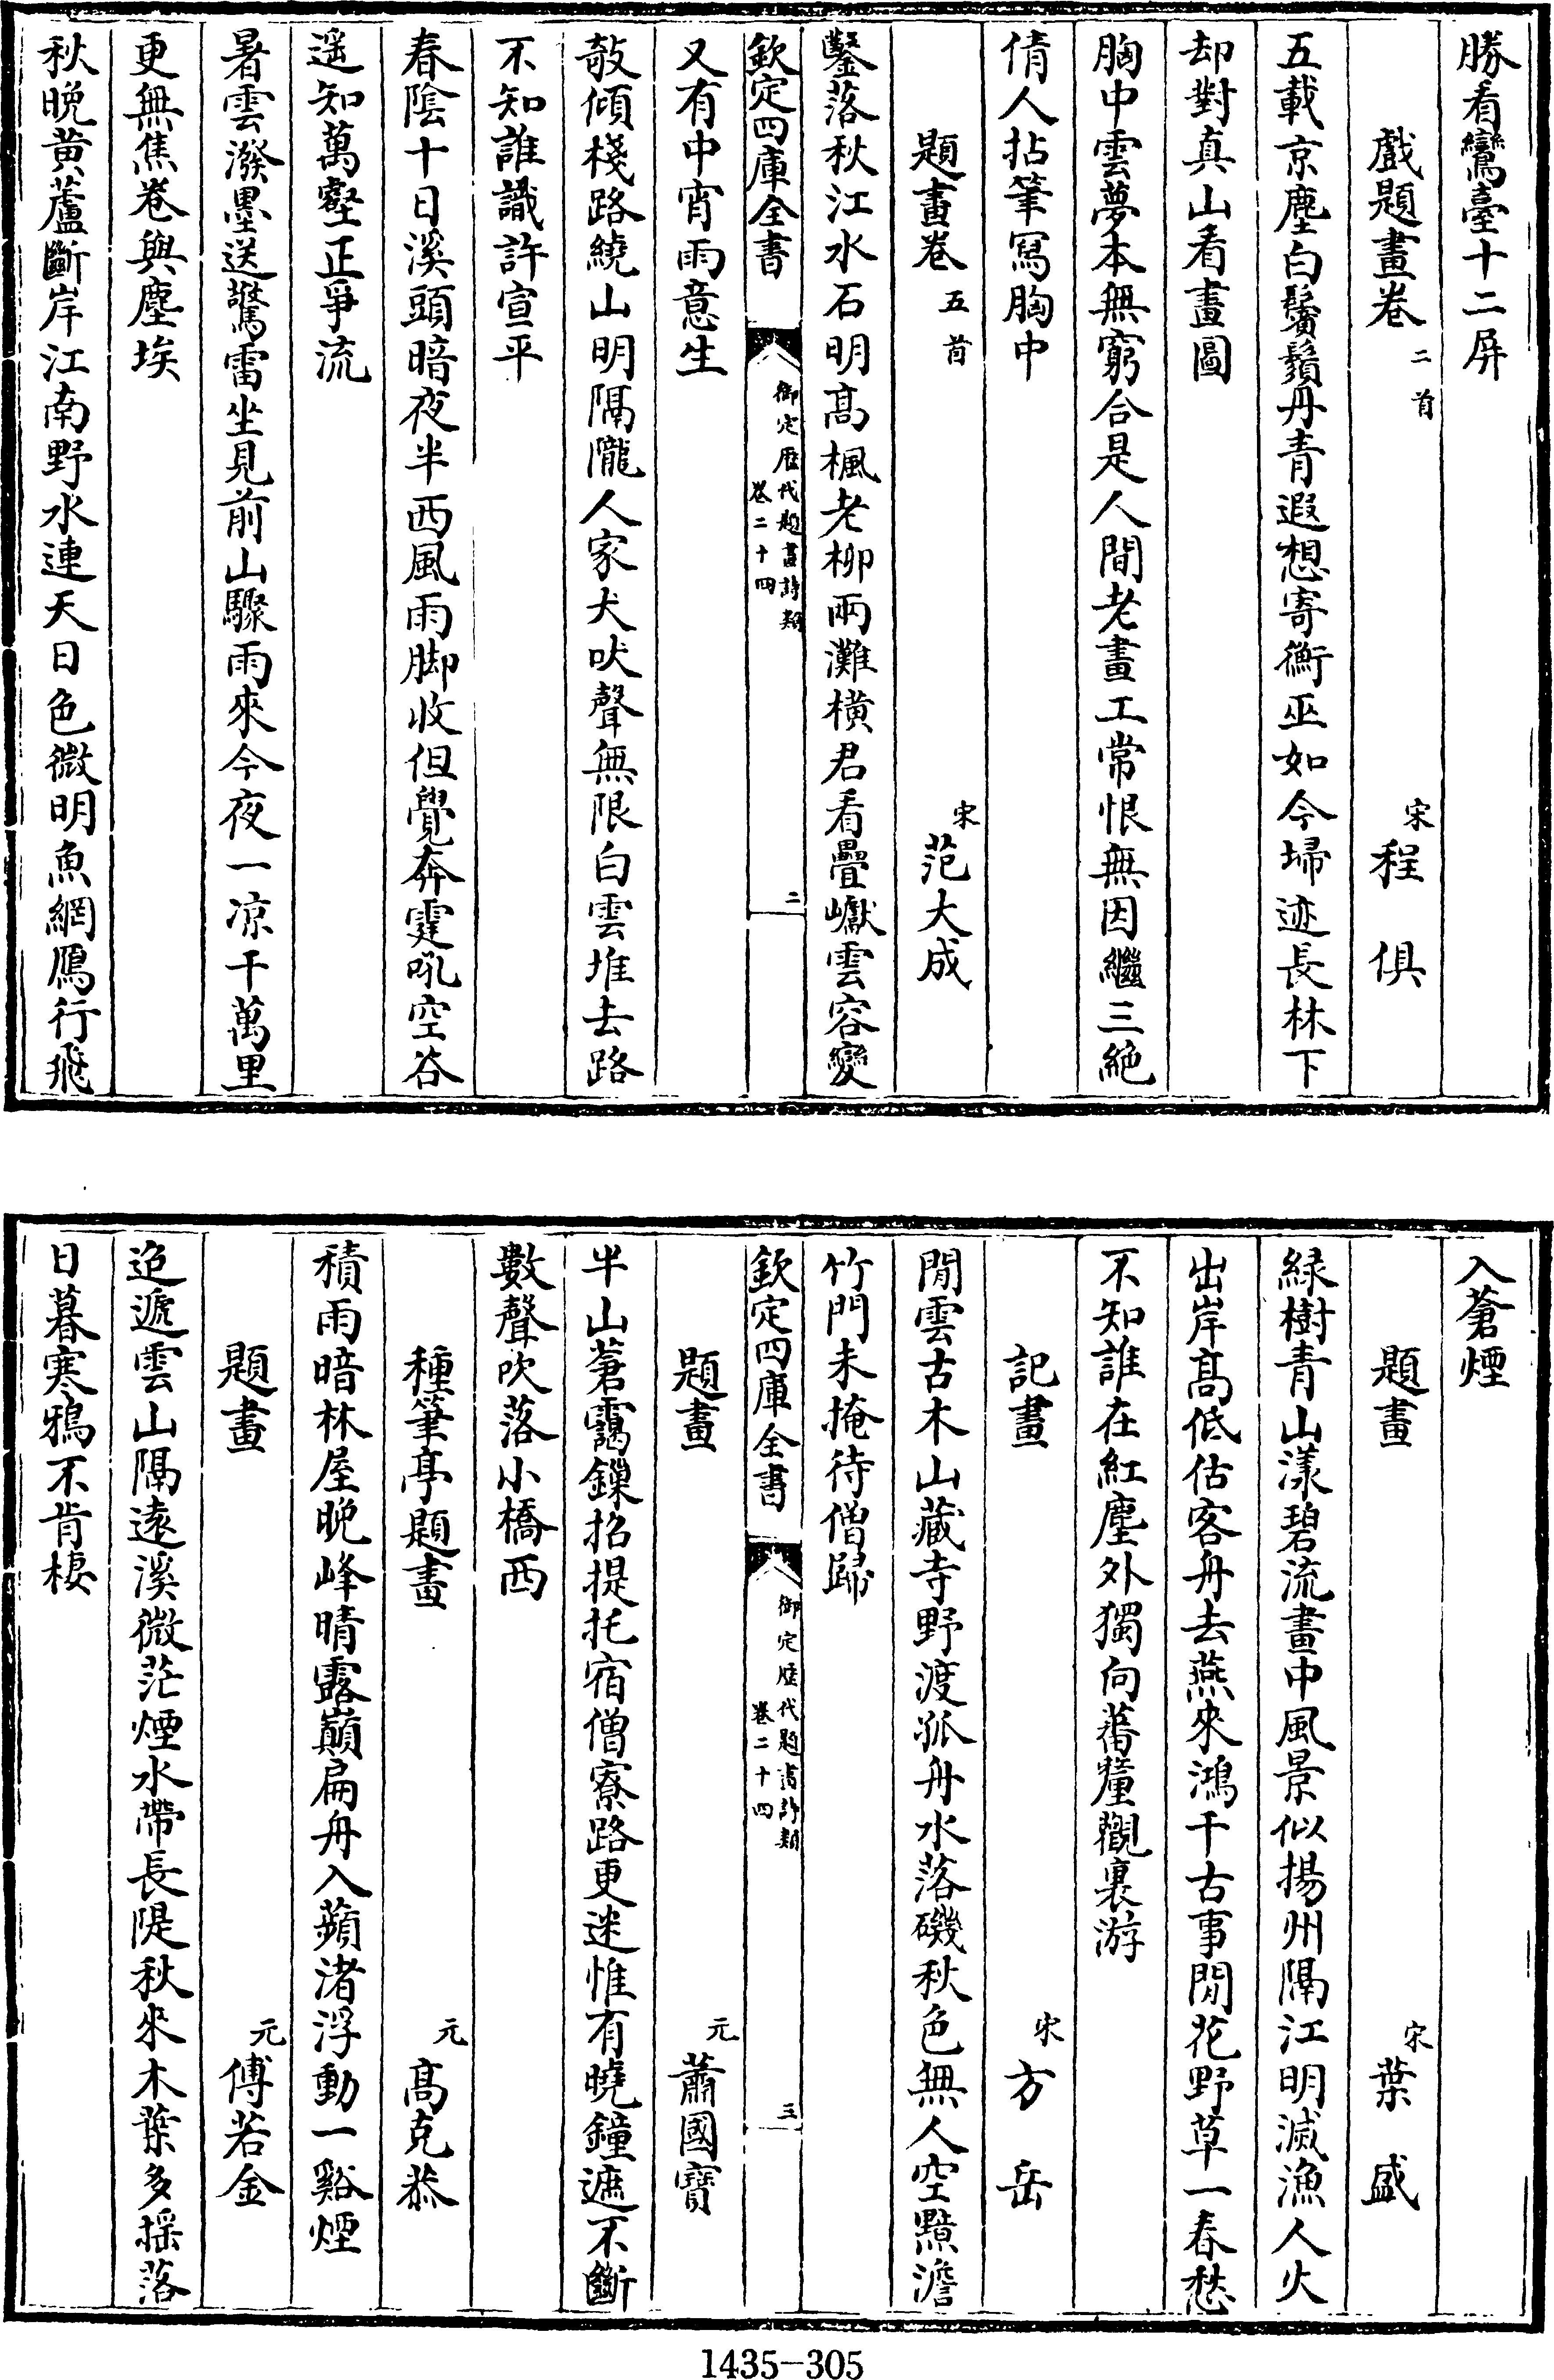 勝看鸞臺十二屏
戲題畫卷 二首 宋 程 俱
五載京塵白鬢鬚丹青遐想寄衡巫如今埽迹長林下
却對真山看畫圖
胸中雲夢本無窮合是人間老畫工常恨無因繼三絶
倩人拈筆寫胸中
題畫卷 五首 宋 范大成
鑿落秋江水石明髙楓老柳兩灘横君看疊巘雲容變
欽定四庫全書 御定歴代題畫詩類 卷二十四 二
又有中宵雨意生
攲傾棧路繞山明隔隴人家犬吠聲無限白雲堆去路
不知誰識許宣平
春陰十日溪頭暗夜半西風雨脚收但覺奔霆吼空谷
遥知萬壑正爭流
暑雲潑墨送驚雷坐見前山驟雨來今夜一凉千萬里
更無焦卷與塵埃
秋晚黄蘆斷岸江南野水連天日色微明魚網鴈行飛
入蒼煙
題畫 宋 葉 盛
緑樹青山漾碧流畫中風景似揚州隔江明滅漁人火
出岸髙低估客舟去燕來鴻千古事閒花野草一春愁
不知誰在紅塵外獨向蕃釐觀裏游
記畫 宋 方 岳
閒雲古木山藏寺野渡孤舟水落磯秋色無人空黯澹
竹門未掩待僧歸
欽定四庫全書 御定歴代題畫詩類 卷二十四 三
題畫 元 蕭國寶
半山蒼靄鏁招提托宿僧寮路更迷惟有曉鐘遮不斷
數聲吹落小橋西
種筆亭題畫 元 髙克恭
積雨暗林屋晚峰晴露巔扁舟入蘋渚浮動一谿煙
題畫 元 傅若金
迢遞雲山隔遠溪微茫煙水帶長隄秋來木葉多揺落
日暮寒鴉不肯棲
1435-305